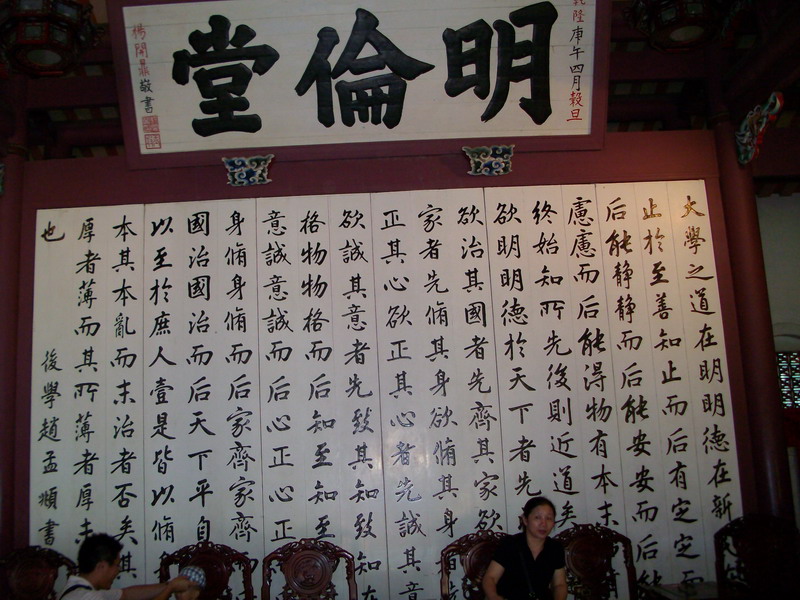 乾隆庚午四月穀旦
明倫堂
楊開鼎敬書
大學之道在明明德在新
止於至善知止而后有定定而
后能静静而后能安安而后能
慮慮而后能得物有本末
終始知所先後則近道矣
欲明明德於天下者先
欲治其國者先齊其家欲
家者先脩其身欲脩其身
正其心欲正其心者先誠其意
欲誠其意者先致其知致知在
格物物格而后知至知至
意誠意誠而后心正心正
身脩身脩而后家齊家齊
國治國治而后天下平自
以至於庶人壹是皆以脩
本其本亂而末治者否矣其
厚者薄而其所薄者厚未
也
後學趙孟頫書